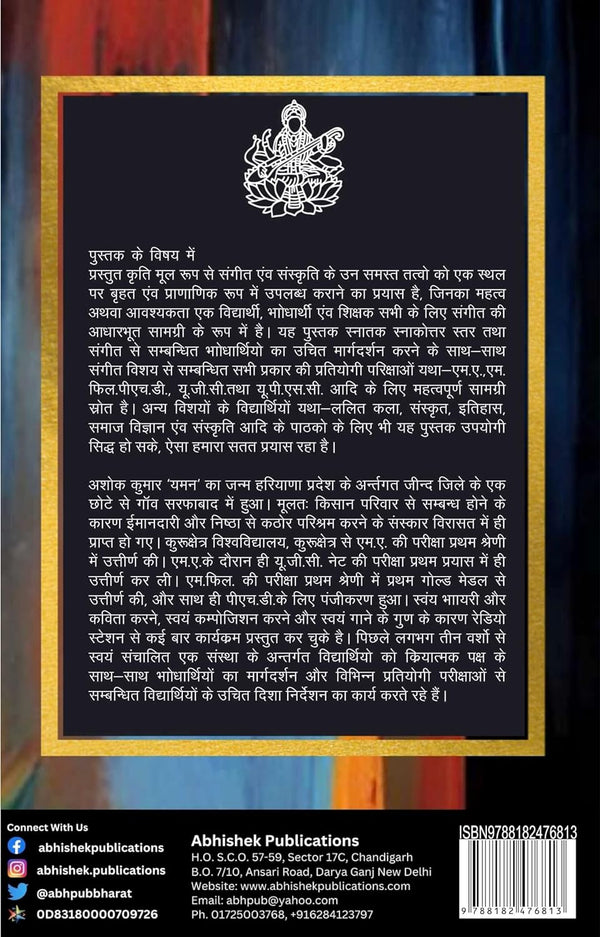 पुस्तक के विषय में
प्रस्तुत कृति मूल रूप से संगीत एंव संस्कृति के उन समस्त तत्वो को एक स्थल
पर बृहत एंव प्राणाणिक रूप में उपलब्ध कराने का प्रयास है, जिनका महत्व
अथवा आवश्यकता एक विद्यार्थी, भाोधार्थी एंव शिक्षक सभी के लिए संगीत की
आधारभूत सामग्री के रूप में है। यह पुस्तक स्नातक स्नाकोत्तर स्तर तथा
संगीत से सम्बन्धित भाोधार्थियो का उचित मार्गदर्शन करने के साथ–साथ
संगीत विशय से सम्बन्धित सभी प्रकार की प्रतियोगी परिक्षाओं यथा–एम.ए.,एम.
फिल.पीएच.डी., यू.जी.सी.तथा यू.पी.एस.सी. आदि के लिए महत्वपूर्ण सामग्री
स्रोत है। अन्य विशयों के विद्यार्थियों यथा–ललित कला, संस्कृत, इतिहास,
समाज विज्ञान एंव संस्कृति आदि के पाठको के लिए भी यह पुस्तक उपयोगी
सिद्ध हो सके, ऐसा हमारा सतत प्रयास रहा है।
अशोक कुमार 'यमन' का जन्म हरियाणा प्रदेश के अर्न्तगत जीन्द जिले के एक
छोटे से गॉव सरफाबाद में हुआ। मूलतः किसान परिवार से सम्बन्ध होने के
कारण ईमानदारी और निष्ठा से कठोर परिश्रम करने के संस्कार विरासत में ही
प्राप्त हो गए। कुरूक्षेत्र विश्वविद्यालय, कुरूक्षेत्र से एम.ए. की परीक्षा प्रथम श्रेणी
में उत्तीर्ण की। एम.ए.के दौरान ही यू.जी.सी. नेट की परीक्षा प्रथम प्रयास में ही
उत्तीर्ण कर ली। एम.फिल. की परीक्षा प्रथम श्रेणी में प्रथम गोल्ड मेडल से
उत्तीर्ण की, और साथ ही पीएच.डी.के लिए पंजीकरण हुआ। स्वंय भाायरी और
कविता करने, स्वयं कम्पोजिशन करने और स्वयं गाने के गुण के कारण रेडियो
स्टेशन से कई बार कार्यक्रम प्रस्तुत कर चुके है। पिछले लगभग तीन वर्शो से
स्वयं संचालित एक संस्था के अन्तर्गत विद्यार्थियो को क्रियात्मक पक्ष के
साथ–साथ भाोधार्थियों का मार्गदर्शन और विभिन्न प्रतियोगी परीक्षाओं से
सम्बन्धित विद्यार्थियों के उचित दिशा निर्देशन का कार्य करते रहे हैं।
Connect With Us
abhishekpublications
abhishek.publications
@abhpubbharat
0D83180000709726
Abhishek Publications
H.O. S.C.O. 57-59, Sector 17C, Chandigarh
B.O. 7/10, Ansari Road, Darya Ganj New Delhi
Website: www.abhishekpublications.com
Email: abhpub@yahoo.com
Ph. 01725003768, +916284123797
ISBN9788182476813
9 788182 476813